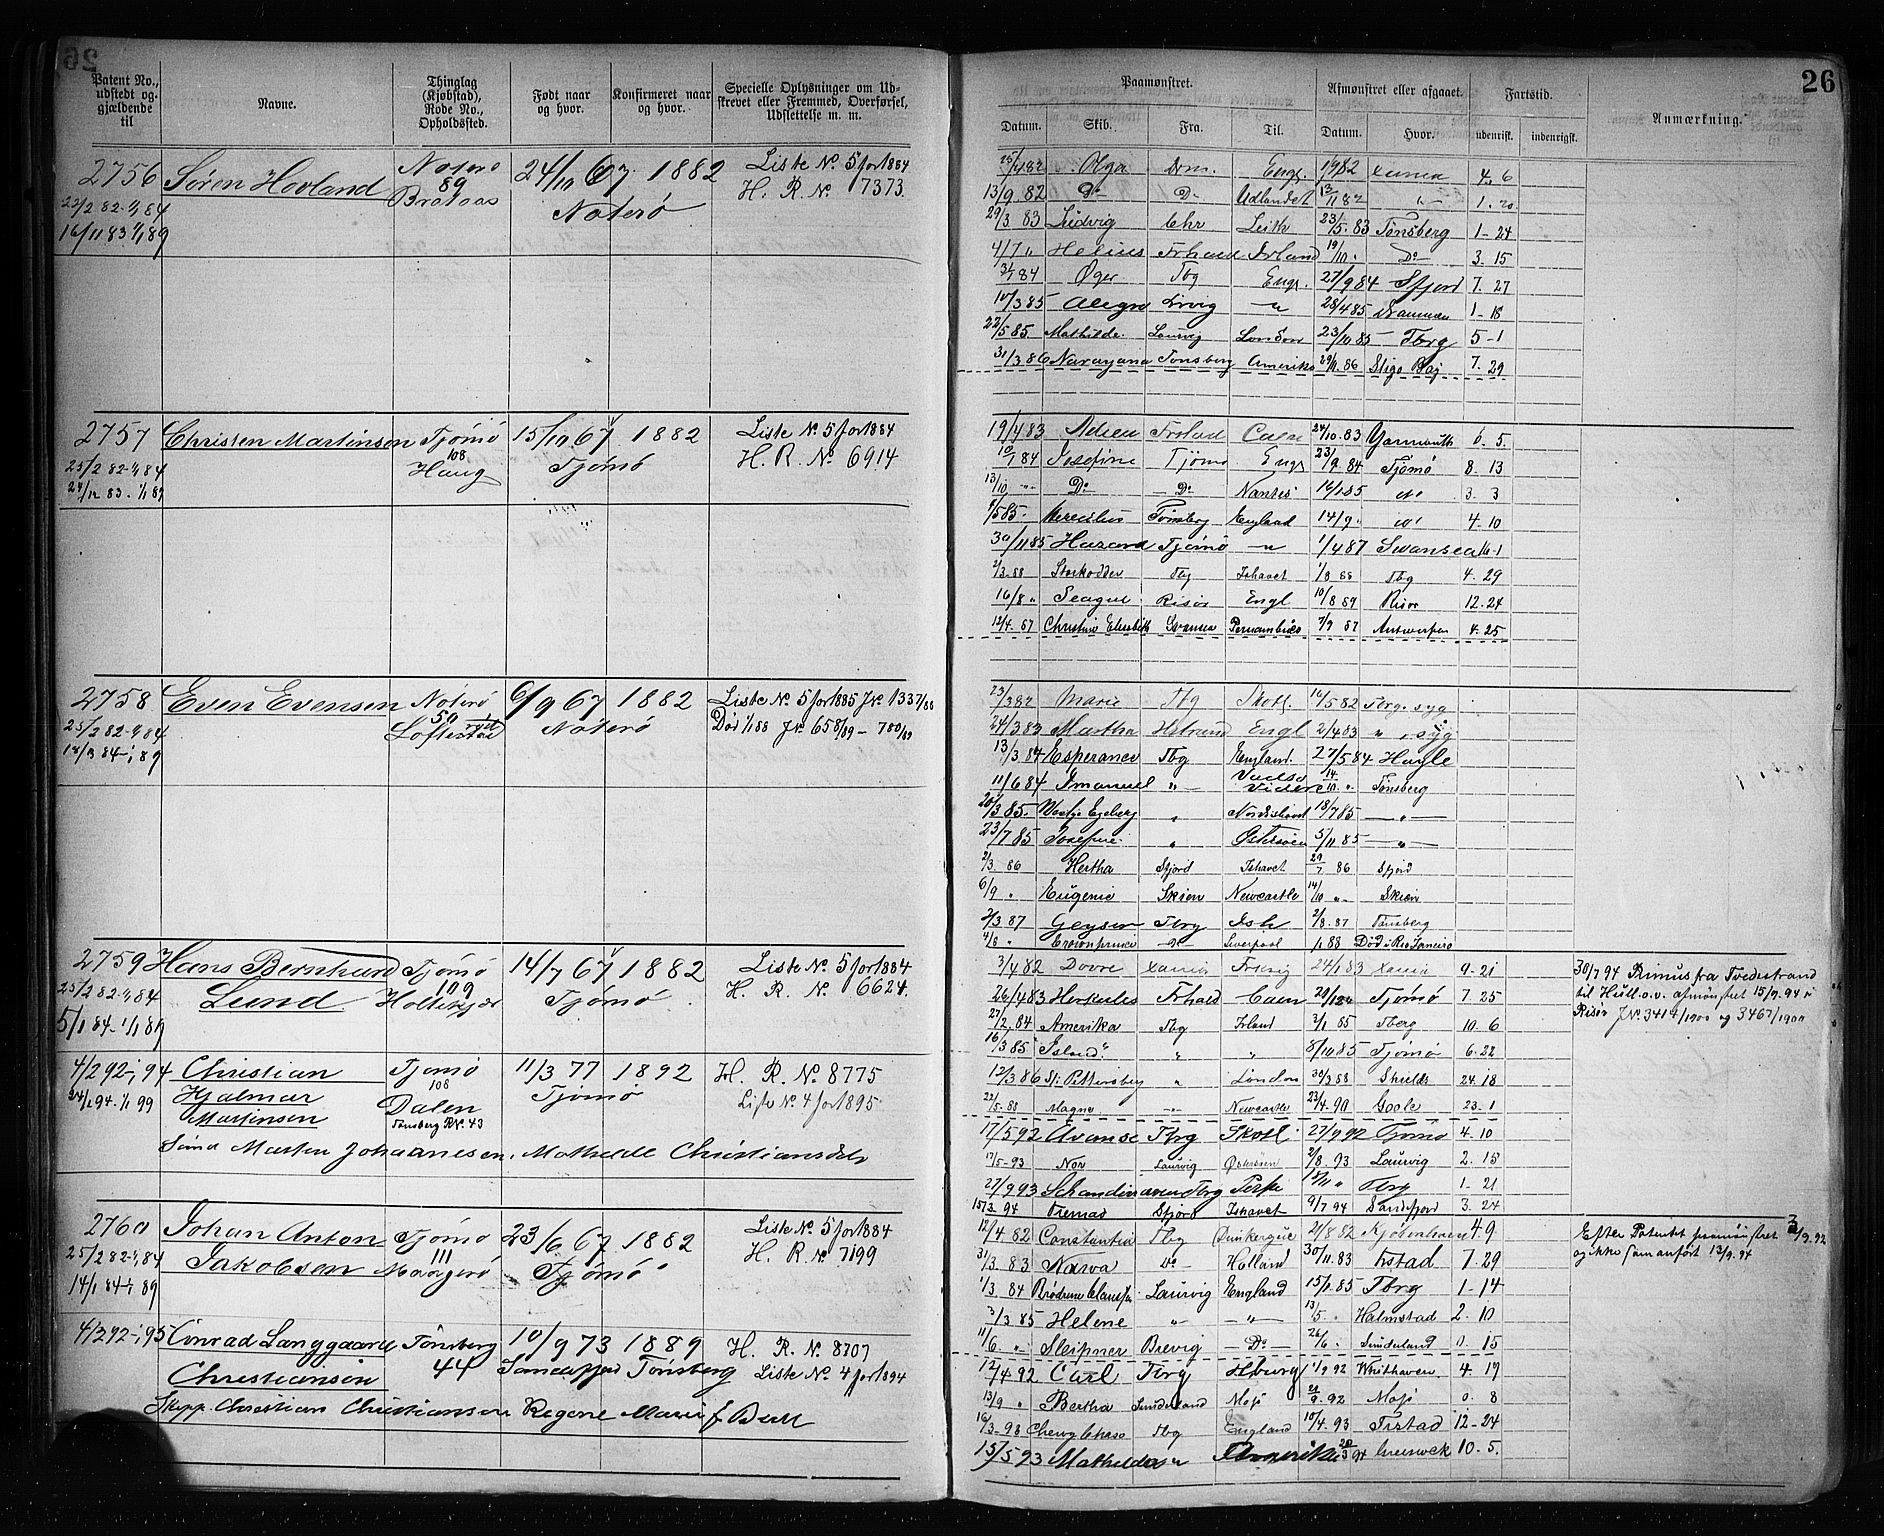 26
Patent No., udstedt og gjældende til
Navne.
Thinglag (Kjøbstad), Rode No., Opholdssted.
Født naar og hvor.
Konfirmeret naar og hvor.
Specielle Oplysninger om Udskrevet eller Fremmed, Overførsel, Udslettelse m. m.
2756 Søren Hovland Nøterø 24/10 67 1882 Liste No. 5 for 1884
89 H. R. No. 7373
22/2 82-1/1 84 Nøterø
16/11 83 1/1 89
2757 Christen Martinsen Tjømø 15/10 67 1882 Liste No. 5 for 1884
108 H. R. No. 6914
25/2 82-1/1 84 Haug Tjømø
24/12 83. 1/1 89
2758 Even Evensen Nøterø 6/9 67 1882 Liste No. 5 for 1885 J No. 1337/88
50 Død 1/1 88 J No. 658/89 - 780/89
25/2 82-1/1 84 Nøterø
18/3 84-1/1 89
2759 Hans Bernhard Tjømø 14/7 67 1882 Liste No. 5 for 1884
109 H. R. No. 6624.
25/2 82-1/1 84 Lund Tjømø
5/1 84-1/1 89
4/2 92-1/1 94 Christian Tjømø 11/3 77 1892 H. R. No. 8775
108 Tjømø Liste No. 4 for 1895
1/1 99 Hjalmar Dalen
Martinsen Tønsberg R No. 43
Martin Johannesen, Mathilde Christiansdtr
2760 Johan Anton Tjømø 23/6 67 1882 Liste No. 5 for 1884
111 H. R. No. 7199
25/2 82-1/1 84 Jakobsen Tjømø
14/1 84-1/1 89
4/2 92-1/1 95 Conrad Langgaard Tønsberg 10/9 73 1889 H. R. No. 8707
Christiansen 44 Tønsberg Liste No. 4 for 1894
Skipp. Christian Christiansen Regine Marie f Bull
26
Paamønstret.
Afmønstret eller afgaaet.
Fartstid.
Anmærkning.
Datum. Skib. Fra. Til. Datum. Hvor. udenrigsk. indenrigsk.
Olga Drm. Engl. 4. 6
13/9. 82 Do Do Udlandet 1. 20
29/3. 83 Ludvig Chr Leith 23/5. 83 Tønsberg 1-24
4/7 " Helius Frhald Irland 19/10 " Do 3. 15
Tbg Engl. 27/9 84 Sfjord 7. 27
10/3 85 28/4 85 Drammen 1-18
22/5 85. Mathilde. Laurvig London 23/10 85 Tbrg 5-1
31/3 86 Narayana Tønsberg Amerika 29/11. 86 Sligo Baj 7. 29
19/4 83 Frstad Caen 24/10. 83 Yarmouth 6. 5
Josefine Tjømø Engl 23/9. 84 Tjømø 8. 13
13/10 " Do Do Nantes 16/1 85 3. 3
1/5 85. Herculus Tønsberg England 14/9. 4. 10
30/11 85 Hazard Tjømø " 1/4 87 Swansea 16-1
2/3. 88 Starkodder Tbg Ishavet 1/8 88 Tbg 4. 29
16/8 " Seagul Risør Engl 10/8 89 Risør 12. 24
12/4. 87 Christine Elisabeth Pernambuco 7/9 87 Antwerpen 4. 25
23/3 82 Marie Tbg Skotl. 16/5 82 Tbrg. syg
24/3 83 Martha Engl 2/4 83 " , syg
13/3. 84 Esperance Tbg England. 27/5 84 Hayle
11/6 84 Imanuel " Vadsø 14/10 ". Tønsberg
Vestye Egeberg " Nordishavet 18/7 85 "
23/7 85 Josefine " Østersøen 5/11 85 "
2/3. 86 Hertha Sfjord Ishavet 29/7 86 Sfjord
6/9 " Eugenie Skien Newcastle 14/10 " Skien
2/3 87 Geyser Tbrg Ish 2/8. 87 Tønsberg
4/8 " Crownprince Do Liverpool 1/1 88 Død i Rio Janeiro
3/4 82 Dovre Xania 24/1 83 Xania 9-21
26/4 83 Herkules Frhald Caen Tjømø 7. 25
27/2. 84 Amerika Tbg Irland 3/1 85 Tberg 10. 6
16/3 85 Island " " 8/10 85 Tjømø 6-22
12/3 86 St. Pettersberg " London 30/3 88 Shields 24. 18
22/5. 88 Magna " Newcastle 23/4. 90 Goole 23. 1
17/5 92 Avanse Tbrg Skotl. 27/9 92 Tjømø 4. 10
17/5-93 Nor Laurvig Østersøen 2/8. 93 Laurvig 2. 15
27/9 93 Schandinaven Tbrg " Tbrg 1-21
15/3. 94 Fremad Sfjord Ishavet 9/7 94 Sandefjord 3. 24
30/7 94 Primus fra Tvedestrand
til Hull o. v. afmønstret 15/9. 94 i
Risør J No. 3414/1900 og 3467/1900
12/4 82 Constantin Tbg Dunkerque 21/8 82 Kjøbenhavn 4. 9
31/3. 83 Narva Do Holland 30/11. 83 Frstad 7. 29
1/3. 84 Brødrene Clausen Laurvig England 15/1. 85 Tbrg 1-14
3/3 85 Helene " " 13/5. " Halmstad 2. 10
11/6 " Sleipner Brevig Do 26/6. " Sunderland 0. 15
12/4 92 Carl Tbrg Hburg 1/9 92 Whithaven 4. 19
13/9 " Bertha Sunderland Mosj 21/9. 92 Mosj 0. 8
16/3-93 Chevy Chase Tbg England 10/4. 93 Frstad 12-24
15/5 93 Mathilda " Amerika 20/3 94 10. 5.
Efter Patentet paamønstret 3/9. 92
og ikke fam anført 13/9. 94